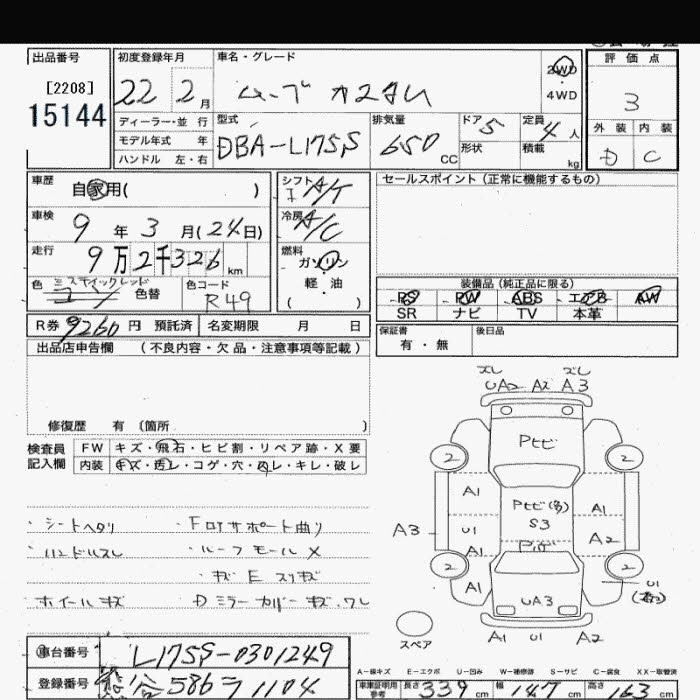 出品番号
[2208]
15144
初度登録年月
22 2月
車名・グレード
ムーブ カスタム
2WD
4WD
評価点
3
外装 内装
D C
ディーラー・並行
モデル年式 年
ハンドル 左・右
型式
DBA-L175S
排気量
650 CC
ドア 5
形状
定員 4人
積載 kg
車歴 自家用( )
シフト A/T
セールスポイント(正常に機能するもの)
車検 9年 3月(24日)
冷房 A/C
走行 9万2千326 km
燃料
ガソリン
軽・油
( )
色 ミスティックレッド
色替
色コード
R49
装備品(純正品に限る)
PS PW ABS エアB AW
SR ナビ TV 本革
R券 9260円 預託済
名変期限 月 日
保証書
有・無
後日品
出品店申告欄 (不良内容・欠品・注意事項等記載)
修復歴 有 (箇所 )
検査員
記入欄
FW キズ・飛石・ヒビ割・リペア跡・X要
内装 キズ・汚レ・コゲ・穴・凹レ・キレ・破レ
ズレ ズレ
UA2 A2 A3
Pヒビ
2 2
A1
Pヒビ(多)
S3
A1
A3
U1
A2
A1
2 2
A1
UA3
U1
A1 U1 A2
スペア
・シートヘタリ ・Fロアサポート曲り
・ハンドルスレ ・ルーフモール X
ホイールキズ ・Dミラーカバーキズ、ワレ
車台番号 L175S-0301249
登録番号 586 ラ 1104
A-線キズ E-エクボ U-凹み W-補修跡 S-サビ C-腐食 XX-取替済
車庫証明用
参考
長さ 339 cm 幅 147 cm 高さ 163 cm